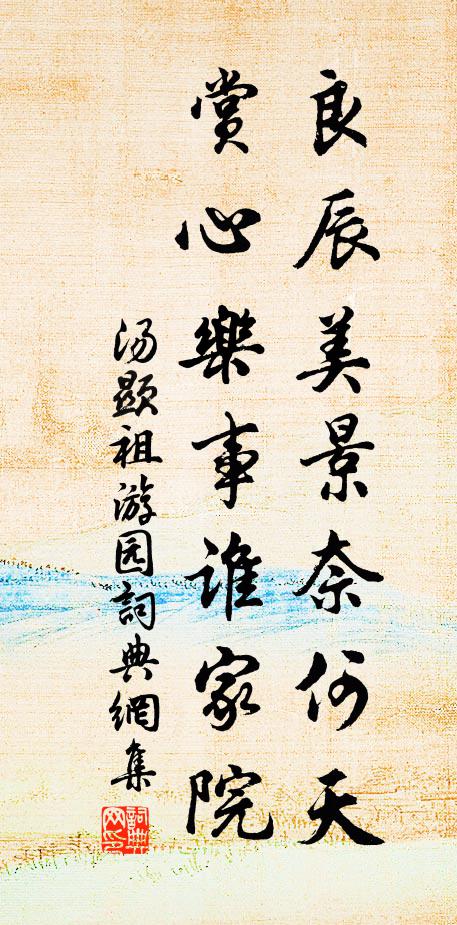 良辰美景奈何天
賞心樂事誰家院
汤顯祖游园詞典網集
詞典网印